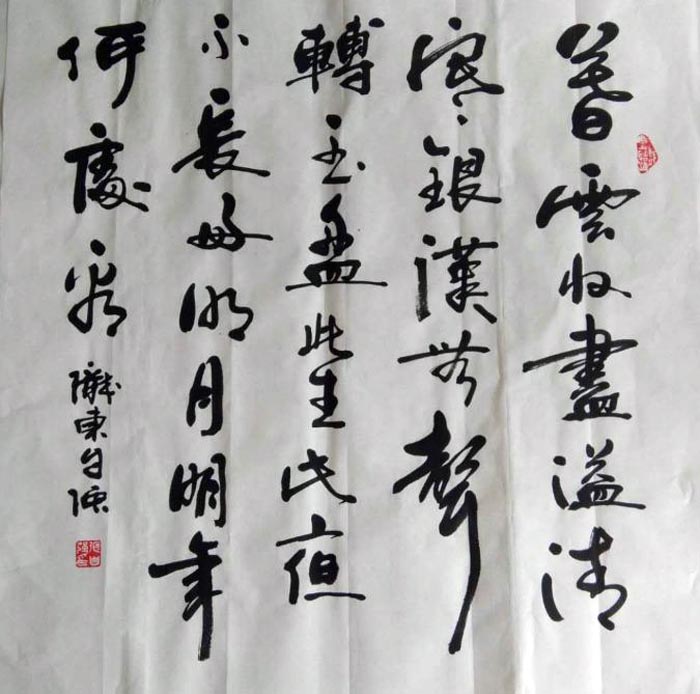 暮雲收盡溢清
寒銀漢無聲
轉玉盤此生此夜
不長好明月明年
何處看
隴東